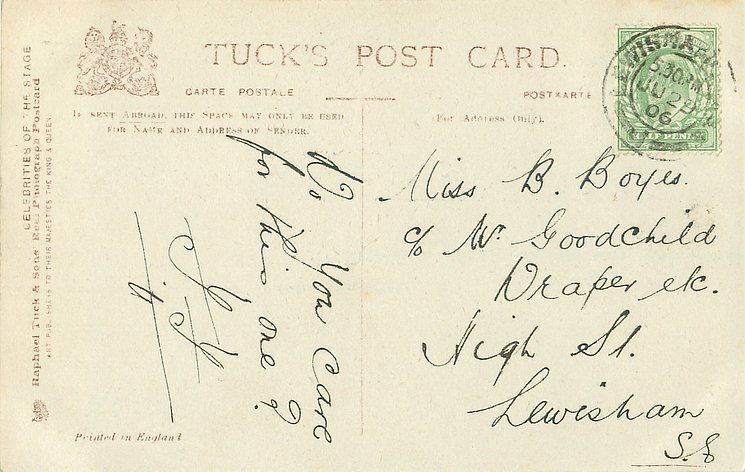 TUCK'S POST CARD.
CARTE POSTALE
POSTKARTE
IF SENT ABROAD, THIS SPACE MAY ONLY BE USED
FOR NAME AND ADDRESS OF SENDER.
(For Address Only).
CELEBRITIES OF THE STAGE
Raphael Tuck & Sons Real Photograph Postcard
ART PUBLISHERS TO THEIR MAJESTIES THE KING & QUEEN.
Do You Care
for this one?
Miss B. Boyes.
c/o Mr Goodchild
Draper etc.
High St.
Lewisham
S.E
LEWISHAM
5.30PM
JU 2
06
HALF PENNY
Printed in England